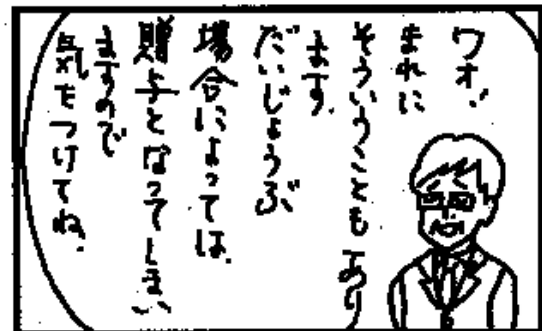 ワオ、
まれに
そういうことも あり
ます。
だいじょうぶ
場合によっては、
贈与となってしまい
ますので
気をつけてね、